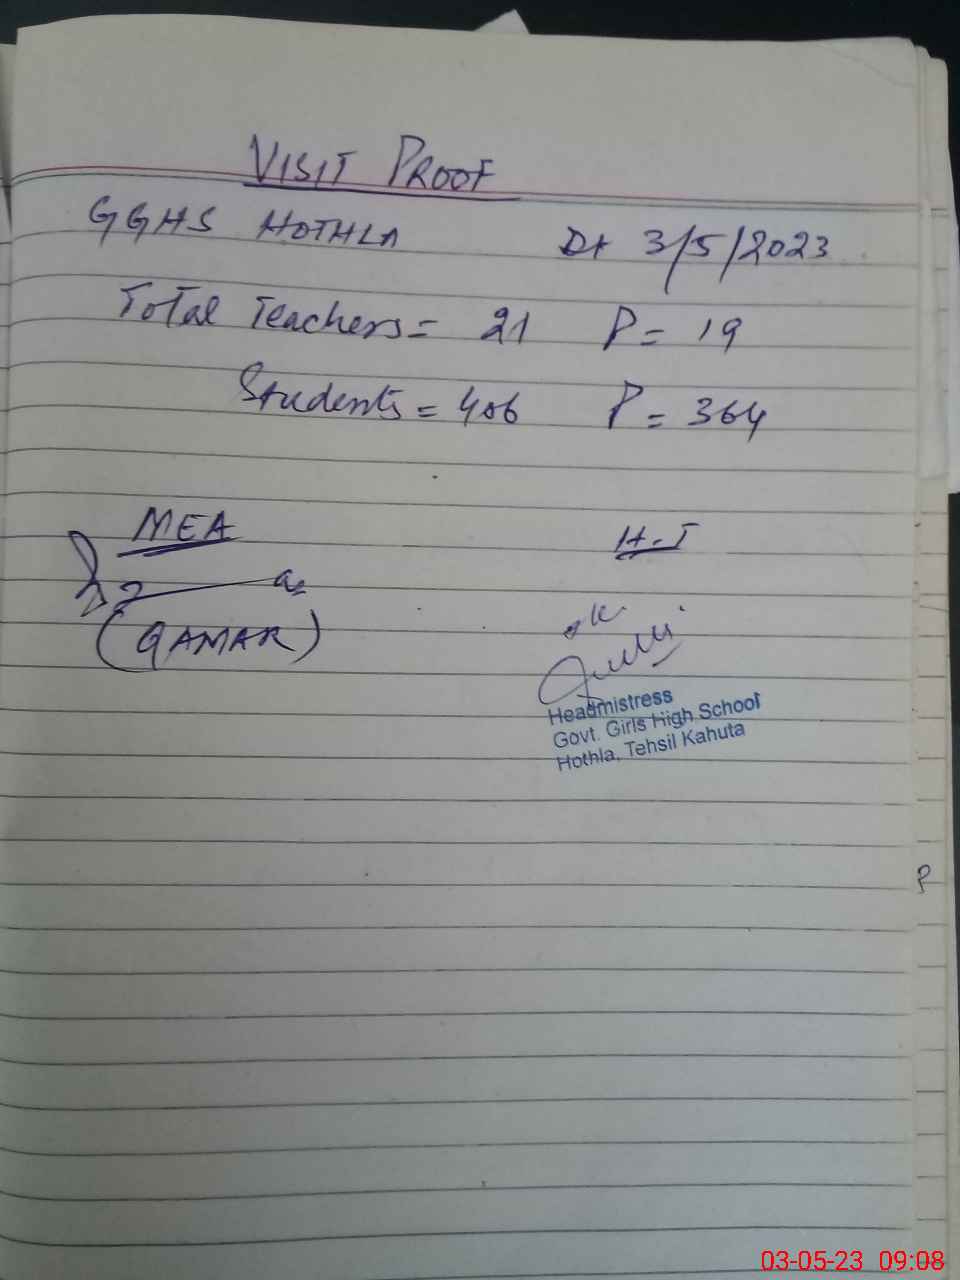 VISIT PROOF
GGHS HOTHLA Dt 3/5/2023
Total Teachers = 21 P = 19
Students = 406 P = 364
MEA H-T
(QAMAR)
ok
Headmistress
Govt. Girls High School
Hothla, Tehsil Kahuta
P
03-05-23 09:08